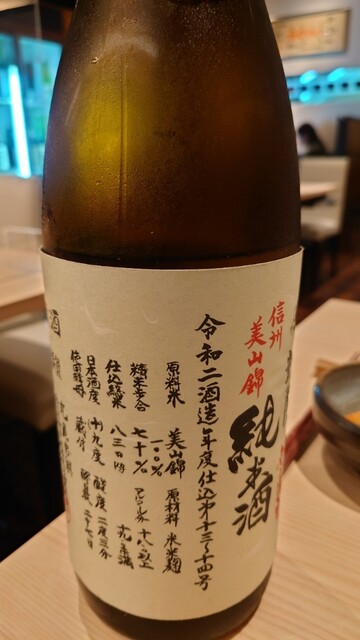 信州
美山錦
純米酒
令和二酒造年度仕込第十三〜十四号
原料米 美山錦 一〇〇% 原材料 米 米麹
精米歩合 七十% アルコール分 十八以上 十九未満
仕込総米 八三〇㎏
日本酒度 (+)九度 酸度 二度三分
使用酵母 蔵付